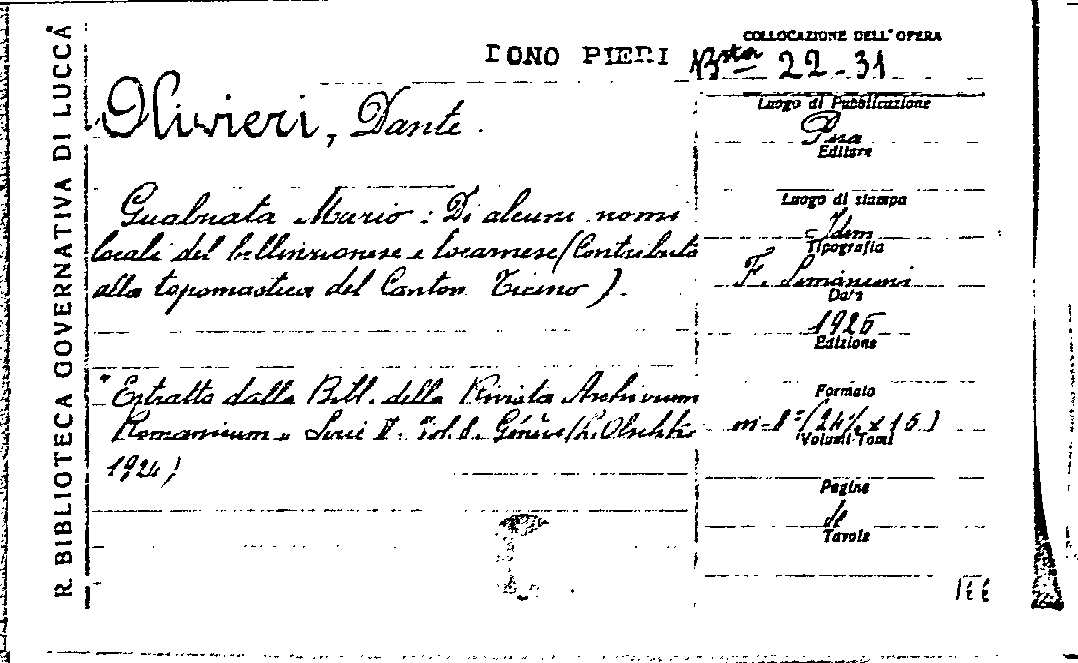 R. BIBLIOTECA GOVERNATIVA DI LUCCA
COLLOCAZIONE DELL'OPERA
DONO PIERI
22-31
Olivieri, Dante.
Mario: Di alcuni nomi
locali del bellinzonese e locarnese (Contributo
alla toponomastica del Canton Ticino).
"Estratto dalla Bibl. della Rivista Archivum
Romanicum. Serie II. Vol. 8. Genève (L. Olschki
1924)
Luogo di Pubblicazione
Pisa
Editore
Luogo di stampa
Idem
Tipografia
F. Simoncini
Data
1925
Edizione
Formato
in-8° (24½ x 16)
Volumi-Tomi
Pagine
Tavole